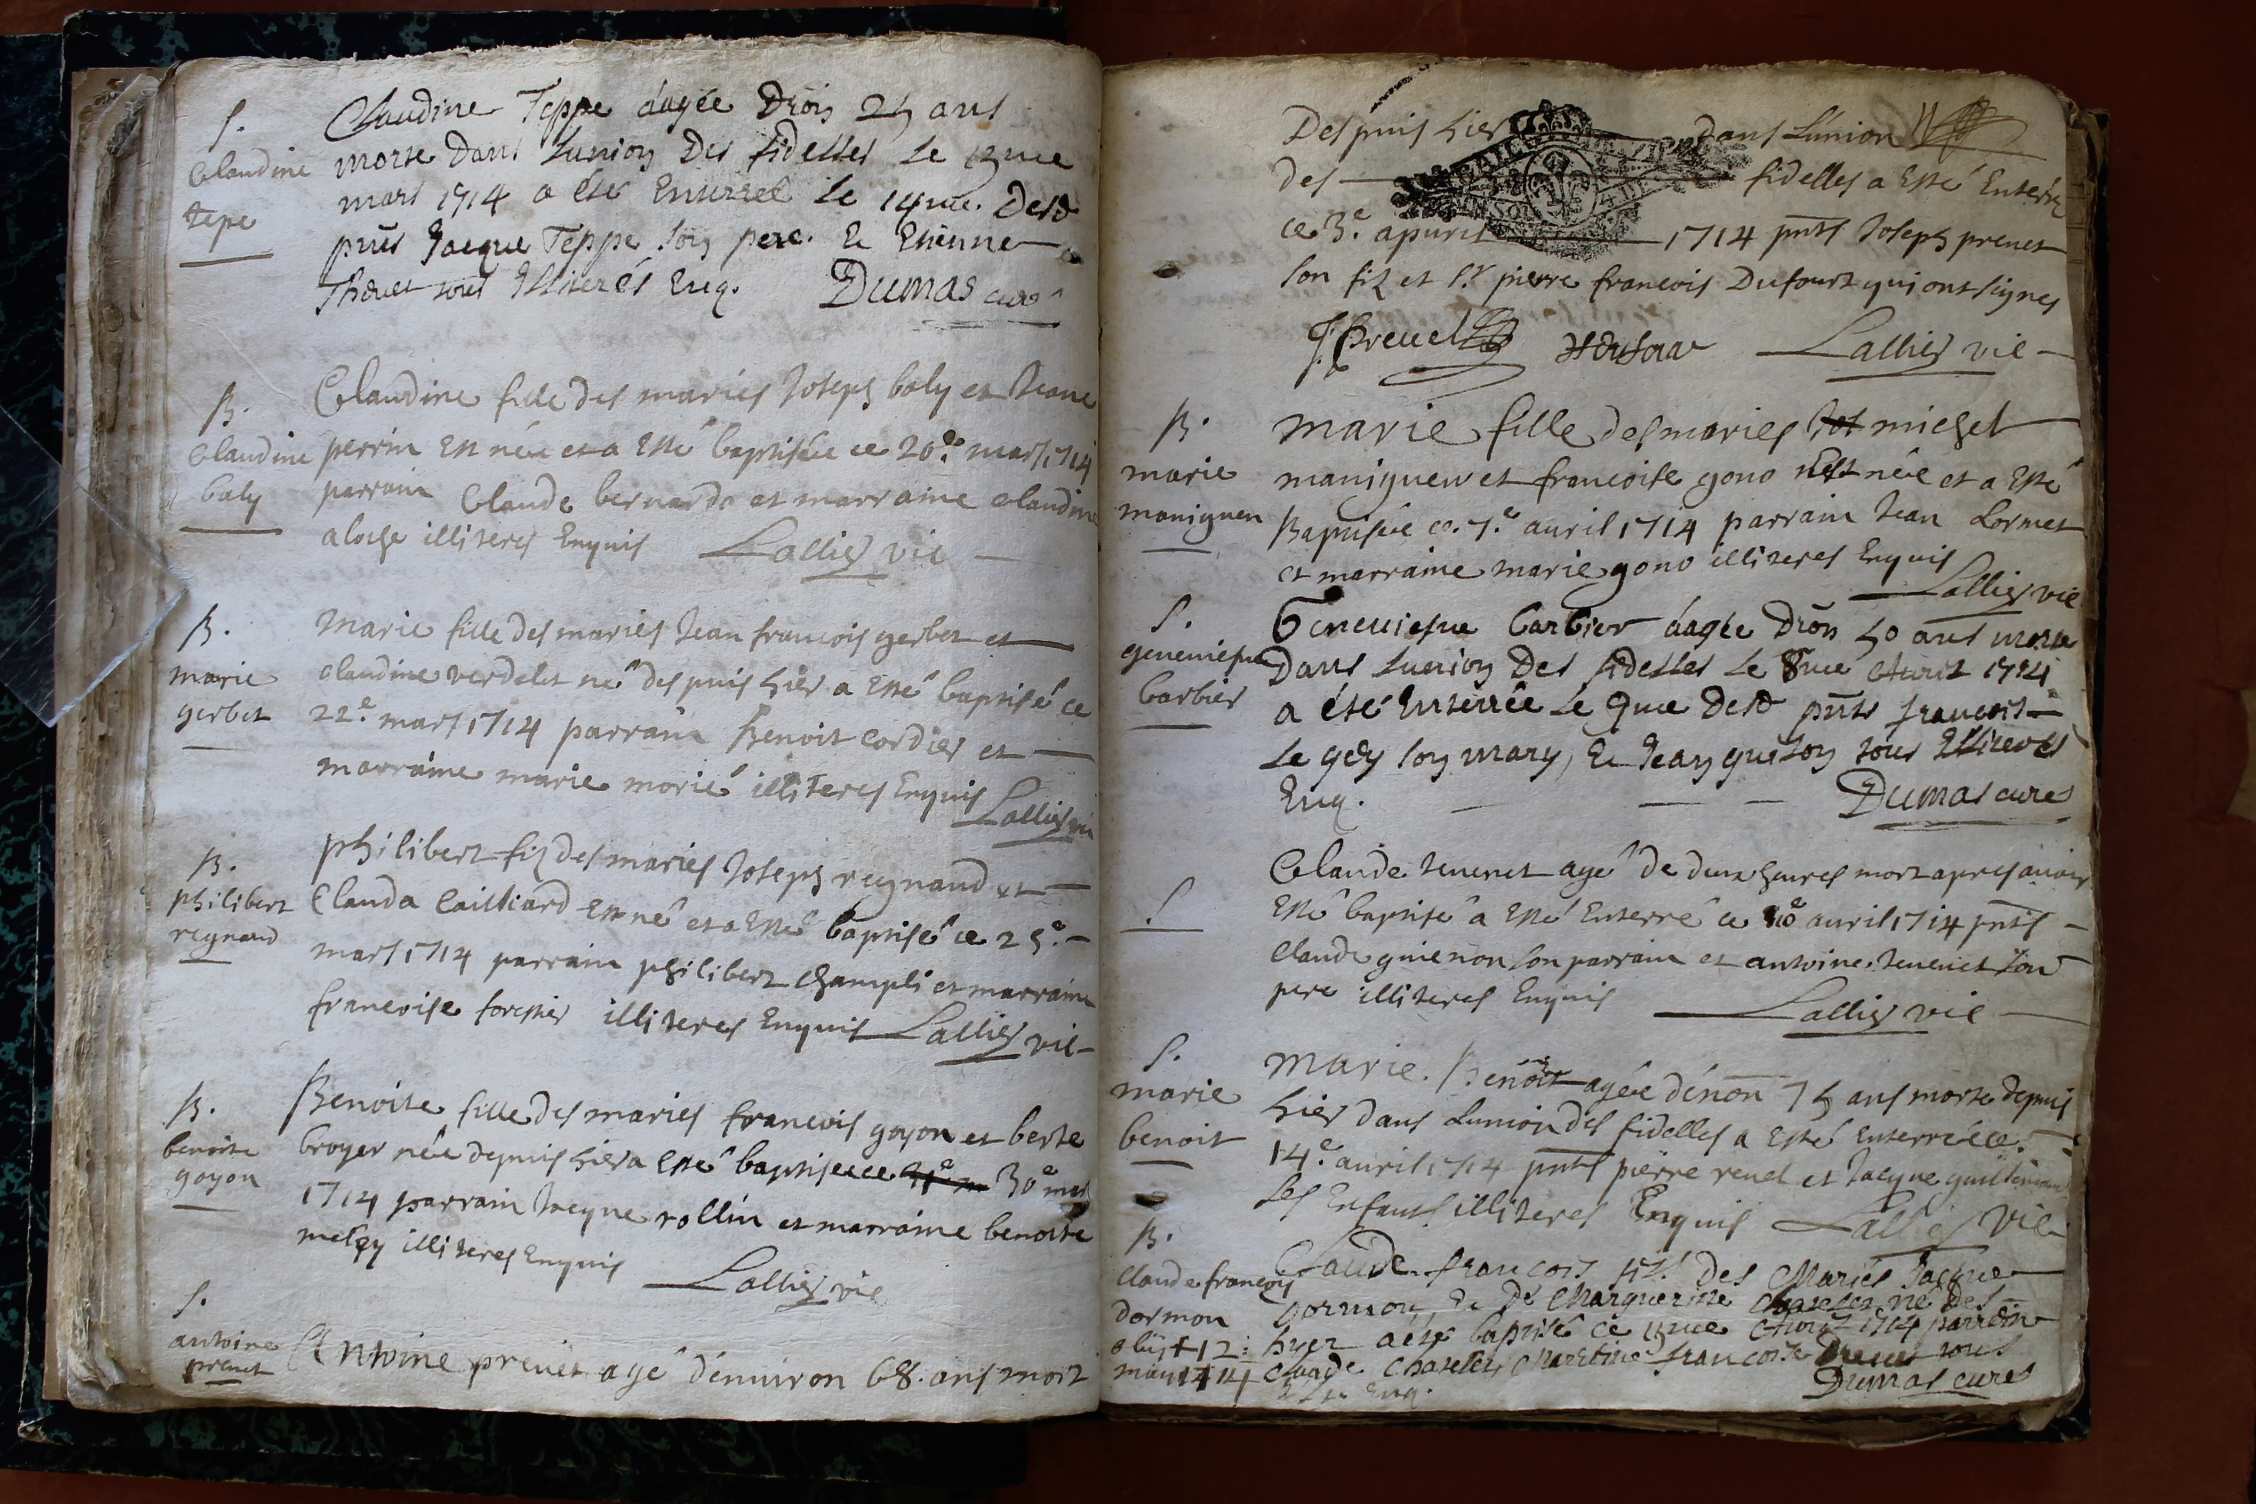 S.
Claudine
tepe
Claudine Teppe áagée Driõ 25 ans
morte Dans Lunion Des fidelles Le 13me
mars 1714 a été Enterrée Le 14me. Desd
pñts Jacque Teppe son pere. Et Etienne
Thevet tous Illiterés Enq. Dumas curé
B.
Claudine
baly
Claudine fille des mariés Joseph baly et Jeane
perrin Est née et a Esté baptisée ce 20e. mars 1714
parrain Claude bernarde et marraine Claudine
aloise illiteres Enquis Lallier vic
B.
marie
gerbet
Marie fille des mariés Jean francois gerbet et
claudine verdelet né des puis hier a Esté baptisé ce
22e. mars 1714 parrain Benoit cordier et
marraine marie morié illiteres Enquis Lallier vic
B.
philibert
regnaud
philibert fiz des mariés Joseph regnaud et
Clauda Cailliard Est né et a Esté baptisé ce 25e.
mars 1714 parrain philibert champli et marraine
francoise forestier illiteres Enquis Lallier vic
B.
benoite
goyon
Benoite fille des mariés francois goyon et berte
broyer née depuis hier a Esté baptisee ce 30e mars
1714 parrain Jacque rollin et marraine benoite
illiteres Enquis Lallier vic
S.
antoine
prevet
Antoine prevet agé d'environ 68. ans mort
Des puis hier dans L'union
des fidelles a Esté Enterré
ce 3e. apuril 1714 pnts Joseph prevet
son fiz et Sr. pierre francois Dufourt qui ont signes
J. Prevel Lallier vic
B.
marie
maniguen
marie fille des mariés michel
maniguen et francoise gono Est née et a Esté
Baptisée ce. 7.e avril 1714 parrain Jean Lormet
et marraine marie gono illiteres Enquis
Lallier vic
S.
geneviefve
barbier
Geneviefve Barbier áagée Driõ 50 ans morte
Dans Lunion Des fidelles Le 8me Avril 1714
a été Enterrée Le 9me Desd pñts francois
Le gey son mary, Et Jean guison tous Illiteres
Enq. Dumas curé
S.
Claude tevenet agé de deux heures mort apres avoir
Esté baptisé a Esté Enterré ce 10e avril 1714 pnts
Claude guienon son parrain et antoine tevenet son
pere illiteres Enquis Lallier vic
S.
marie
benoit
Marie. Benoit agée d'enon 75 ans morte depuis
hier dans Lunion des fidelles a Esté Enterrée ce.
14.e avril 1714 pnts pierre revel et Jacque
ses Enfants illiteres Enquis Lallier vic
B.
Claude francois
dormon
obiit 12:
may 1714
Claude francois fiz des Mariés Jacque
Dormon, Et De Marguerite Chatelet né Des
hyer a été baptisé ce Avril 1714 parrain
Claude Chatelet, Maraine francoise prevet tous
Enq. Dumas curé